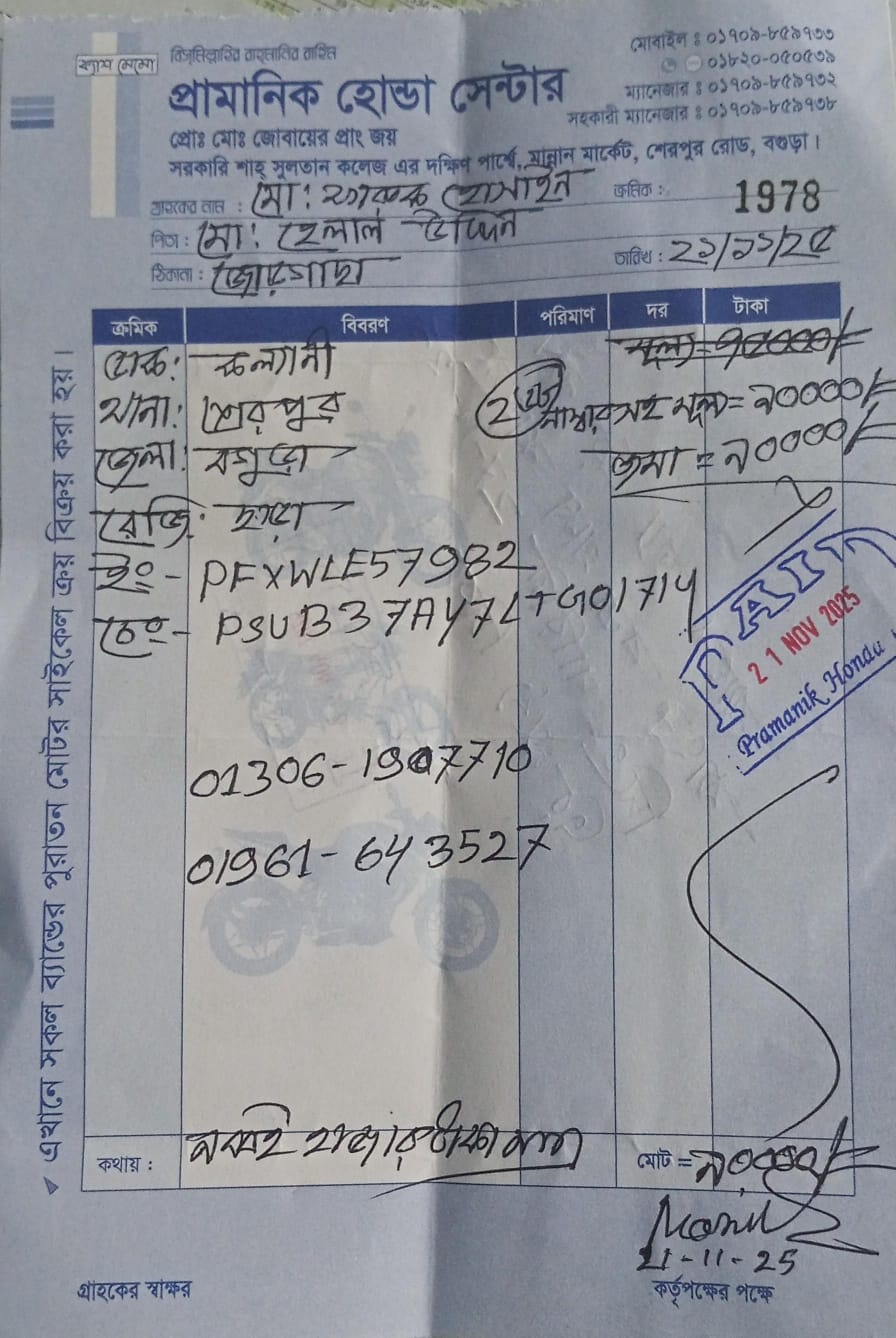 ক্যাশ মেমো
বিসমিল্লাহির রাহমানির রাহিম
মোবাইল : ০১৭০৯-৮৫৯৭৩৩
০১৮২০-০৫০৫৩৯
প্রামানিক হোন্ডা সেন্টার
ম্যানেজার : ০১৭০৯-৮৫৯৭৩২
সহকারী ম্যানেজার : ০১৭০৯-৮৫৯৭৩৮
প্রোঃ মোঃ জোবায়ের প্রাং জয়
সরকারি শাহ্ সুলতান কলেজ এর দক্ষিণ পার্শ্বে, মান্নান মার্কেট, শেরপুর রোড, বগুড়া।
গ্রাহকের নাম : মো: ফারুক হোসাইন
ক্রমিক : 1978
পিতা : মো: হেলাল উদ্দিন
তারিখ : ২১/১১/২৫
ঠিকানা : জোরগাছা
ক্রমিক বিবরণ পরিমাণ দর টাকা
ডাক: কল্যানী
মূল্য = ৭৫০০০/-
থানা: শেরপুর
নাম্বার সহ মূল্য = ৯০০০০/-
জেলা: বগুড়া
জমা = ৯০০০০/-
রেজি: ছাড়া
ইং - PFXWLE57982
চেং - PSUB37AY7LTG01714
PAID
21 NOV 2025
Pramanik Honda
01306-1907710
01961-643527
কথায় : নব্বই হাজার টাকা মাত্র
মোট = ৯০,০০০/-
21-11-25
গ্রাহকের স্বাক্ষর
কর্তৃপক্ষের পক্ষে
এখানে সকল ব্যান্ডের পুরাতন মোটর সাইকেল ক্রয় বিক্রয় করা হয়।